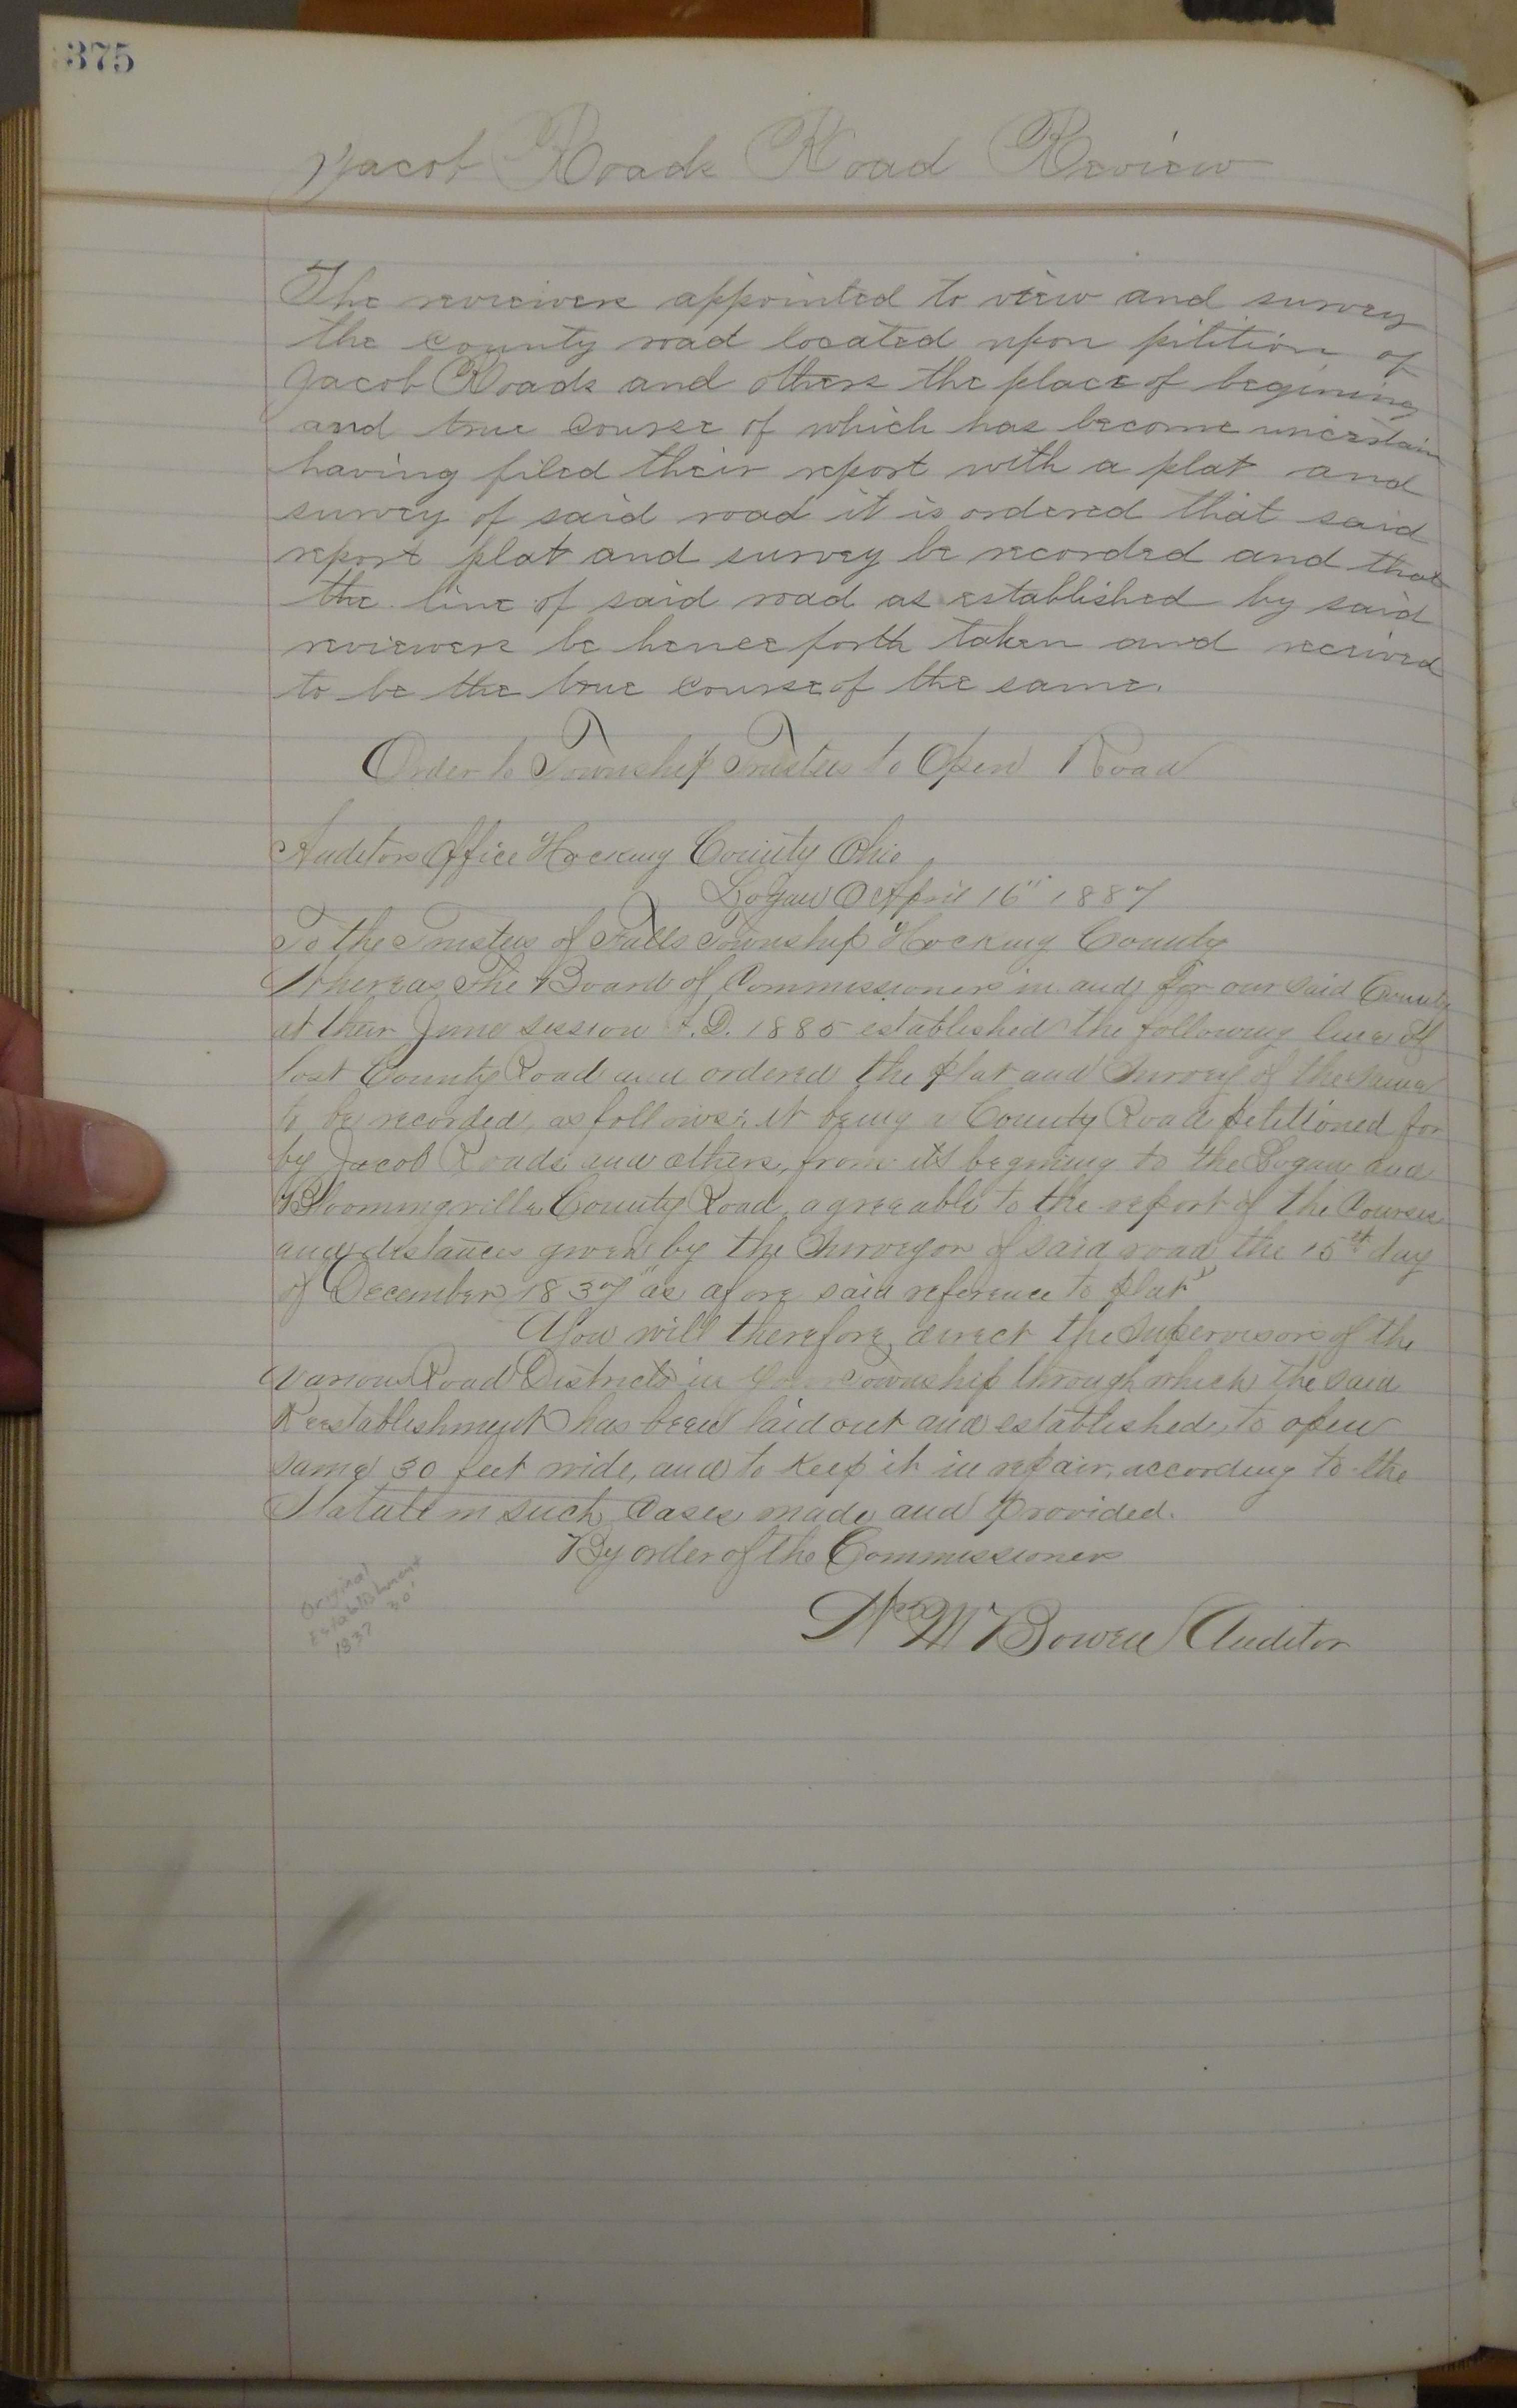 375
Jacob Roads Road Review
The reviewers appointed to view and survey
the county road located upon pitition of
Jacob Roads and others the place of begining
and true course of which has become uncertain
having filed their report with a plat and
survey of said road it is ordered that said
report plat and survey be recorded and that
the line of said road as established by said
reviewers be henceforth taken and received
to be the true course of the same.
Order to Township Trustees to Open Road
Auditors Office Hocking County Ohio
Logan O April 16" 1887
To the Trustees of Falls Township Hocking County
Whereas, The Board of Commissioners in and for our said County
at their June session A.D. 1885 established the following line of
lost County Road and ordered the plat and Survey of the same
to be recorded, as follows: it being a County Road petitioned for
by Jacob Roads and others, from its begining to the Logan and
Bloomingville County Road, agreeable to the report of the Courses
and distances given by the Surveyor of said road, the 15th day
of December 1837 as afore said reference to plat
You will therefore, direct the Supervisors of the
various Road Districts in your Township through which the said
Reestablishment has been laid out and established, to open
same 30 feet wide, and to Keep it in repair, according to the
Statute in such Cases made and provided.
By order of the Commissioners
Wm M Bowen Auditor
Original
Establishment
1837 30'